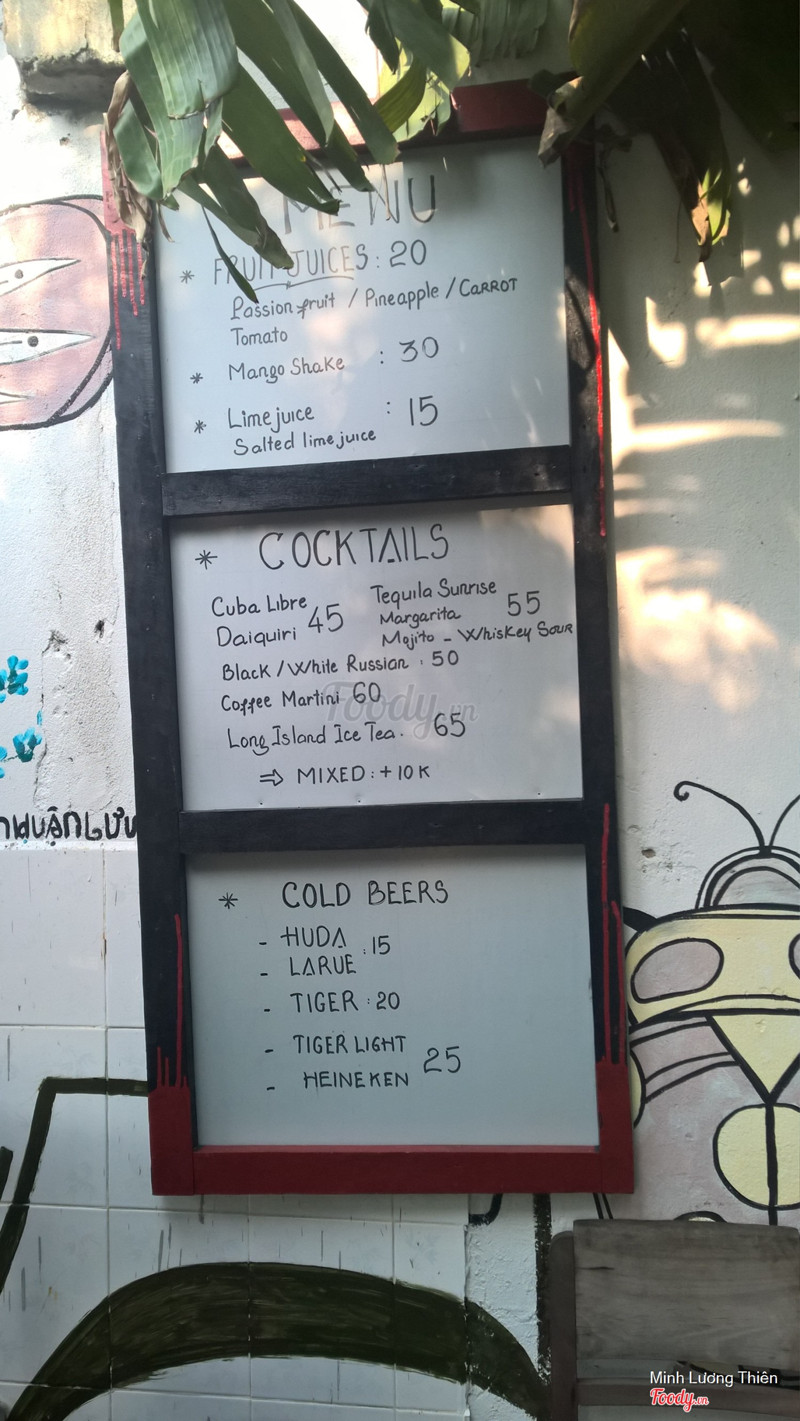 MENU
* FRUIT JUICES : 20
Passion fruit / Pineapple / CARROT
Tomato
* Mango Shake : 30
* Lime juice : 15
Salted lime juice
* COCKTAILS
Cuba Libre
Daiquiri 45
Tequila Sunrise
Margarita 55
Mojito - Whiskey Sour
Black / White Russian : 50
Coffee Martini 60
Long Island Ice Tea. 65
⇒ MIXED : + 10 K
* COLD BEERS
- HUDA
- LARUE : 15
- TIGER : 20
- TIGER LIGHT
- HEINEKEN 25
Foody.vn
Minh Lương Thiên
Foody.vn